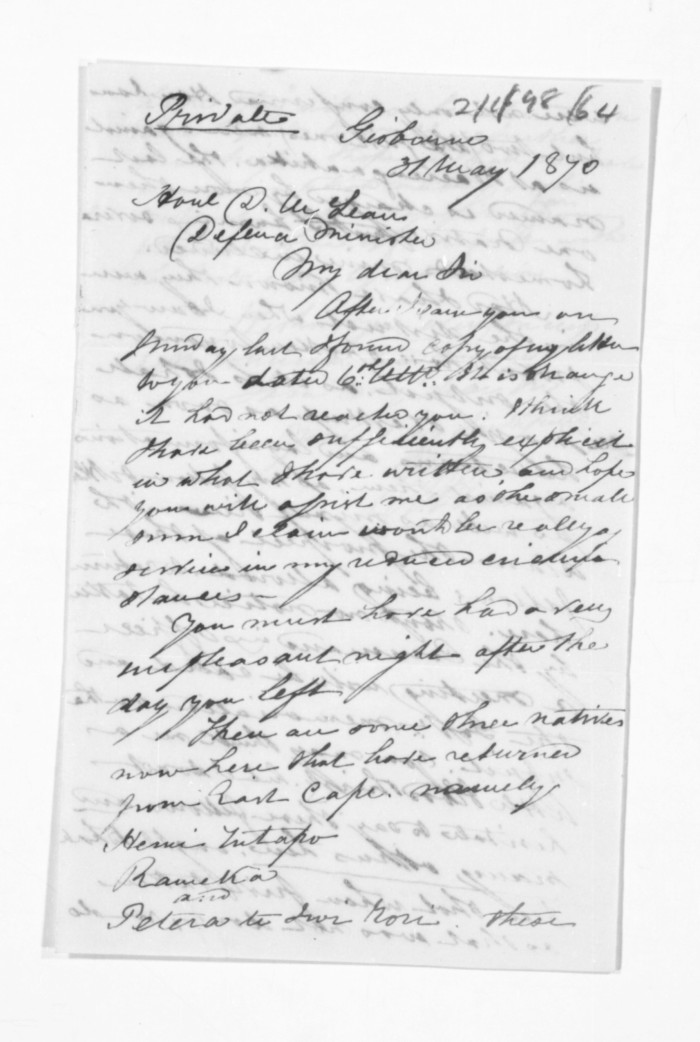 Private
Gisborne
31 May 1870
Honl D. McLean
Defence Minister
My dear Sir
After I saw you on
Sunday last I found copy of my letter
to you dated 6th Ulto. It is strange
it had not reached you. I think
I have been sufficiently explicit
in what I have written and hope
you will assist me as the small
sum I claim would be really a
service in my reduced circum
stances —
You must have had a very
unpleasant night after the
day you left
There are some three natives
now here that have returned
from East Cape. namely
Hemi Tutapo
Rameka
and
Petera te Iwi Rori. these